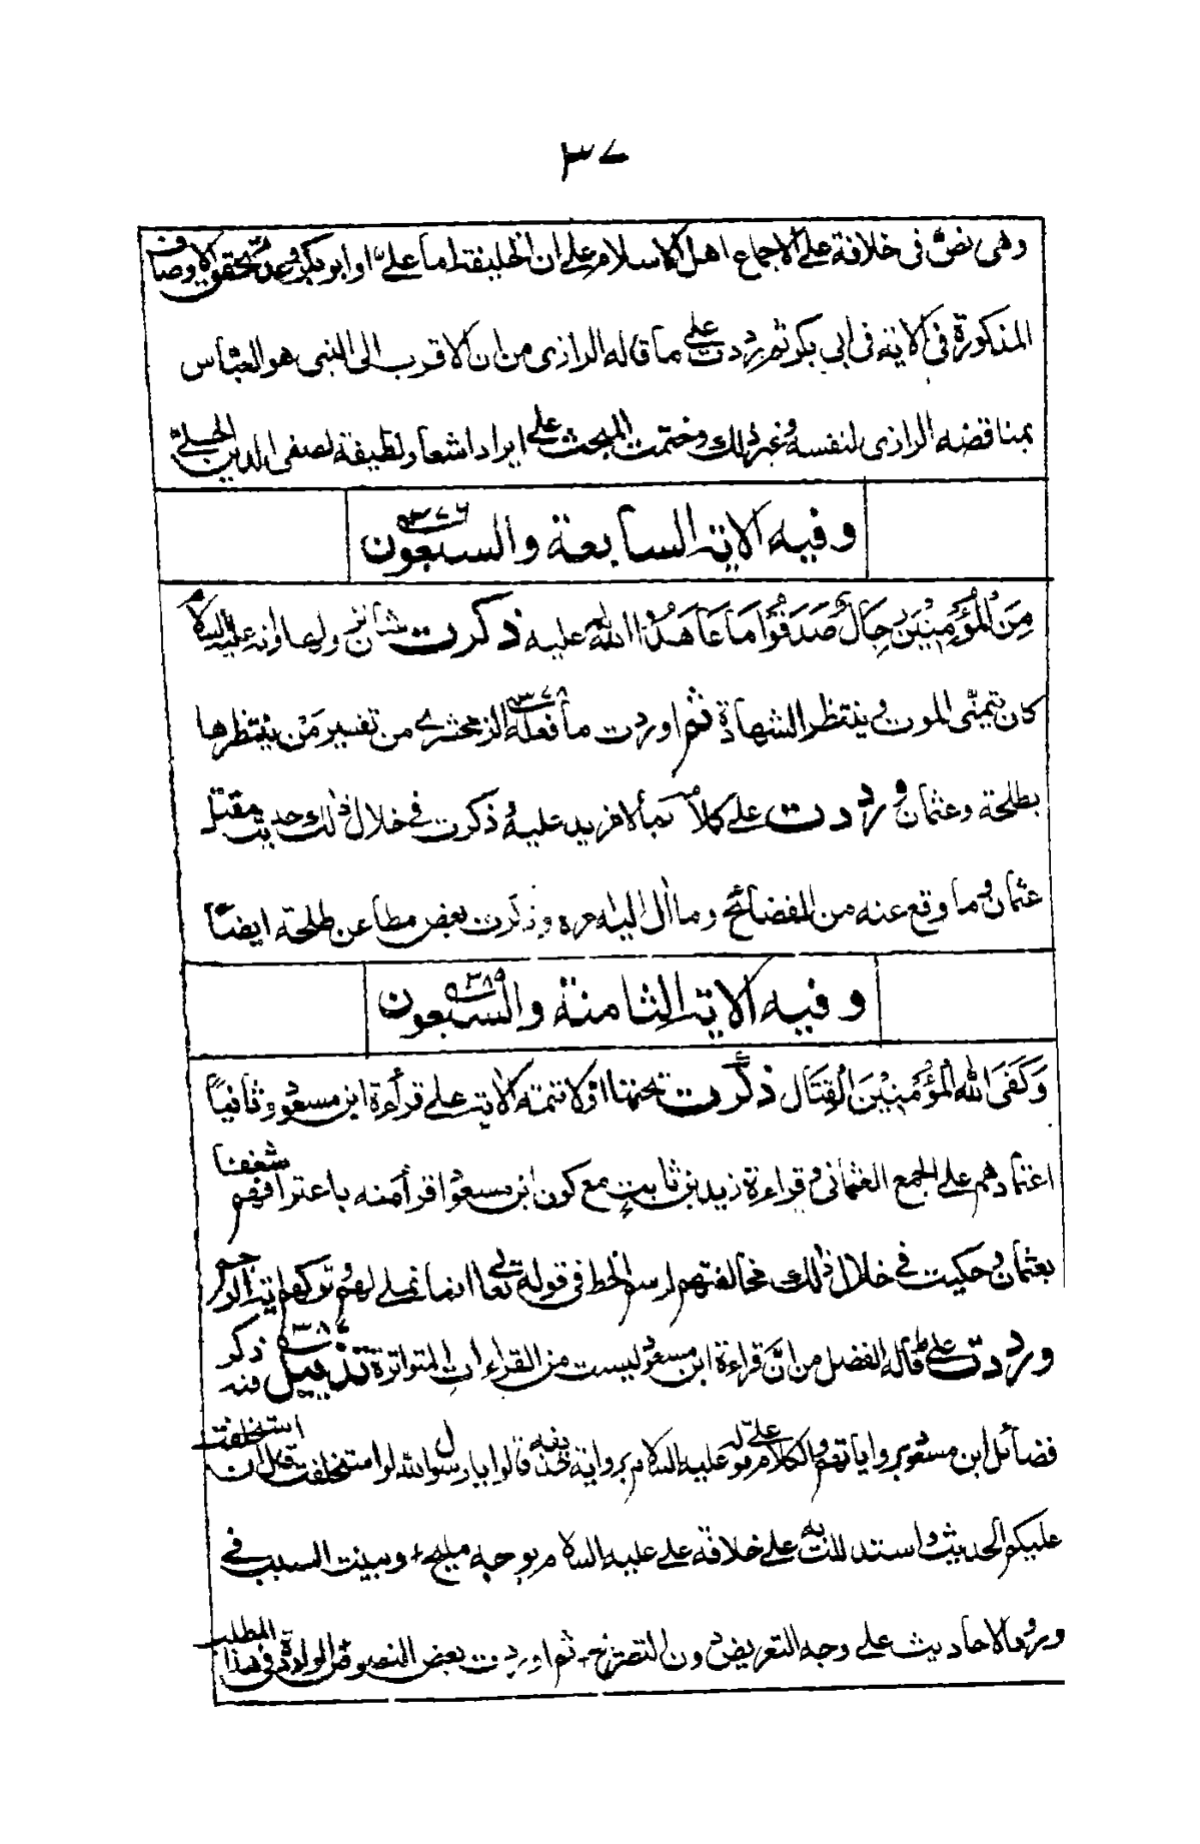 ٣٧
وهى نص فى خلافة على لاجماع اهل الاسلام على ان الخليفة اما على او ابو بكر وعدم تحقق الاوصاف
المذكورة فى الاية فى ابى بكر ثم رددت على ما قاله الرازى من ان الاقرب الى النبى هو العباس
بمناقضه الرازى لنفسه وغير ذلك وختمت المبحث على ايراد اشعار لطيفة لصفى الدين الحلى
وفيه الاية السابعة والسبعون
مِنَ الْمُؤْمِنِيْنَ رِجَالٌ صَدَقُوْا مَا عَاهَدُوا اللهَ عليه ذكرت شأن نزولها وانه عليه السلام
كان يتمنى الموت وينتظر الشهادة ثم اوردت ما فعله الزمخشرى من تفسير مَنْ ينتظرها
بطلحة وعثمان ورددت على كلامه بما لا مزيد عليه وذكرت فى خلال ذلك حديث مقتل
عثمان وما وقع عنه من الفضائح وما ال اليه امره وذكرت بعض مطاعن طلحة ايضاً
وفيه الاية الثامنة والسبعون ٣٨٥
وَكَفَى اللهُ الْمُؤْمِنِيْنَ الْقِتَال ذكرت تحتها اولا تتمة الاية على قرأءة ابن مسعود وثانياً
اعتمادهم على الجمع العثمانى وقراءة زيد بن ثابت مع كون ابن مسعود اقرأ منه باعترافهم شغفنا
بعثمان وحكيت فى خلال ذلك مخالفتهم لرسم الخط فى قوله تعالى انما نملى لهم وتركهم اية الرجم
ورددت على ما قاله الفضل من ان قراءة ابن مسعود ليست من القراءات المتواترة تذييل ذكر فيه
فضائل ابن مسعود برواياتهم والكلام على قوله عليه السلام برواية حذيفه قالوا يا رسول الله لو استخلفت قال ان استخلفت
عليكم الحديث واستدللت به على خلافة على عليه السلام بوجه مليح وبينت السبب فى
ورود الاحاديث على وجه التعريض دون التصريح ثم اوردت بعض النصوص الواردة فى هذا المطلب